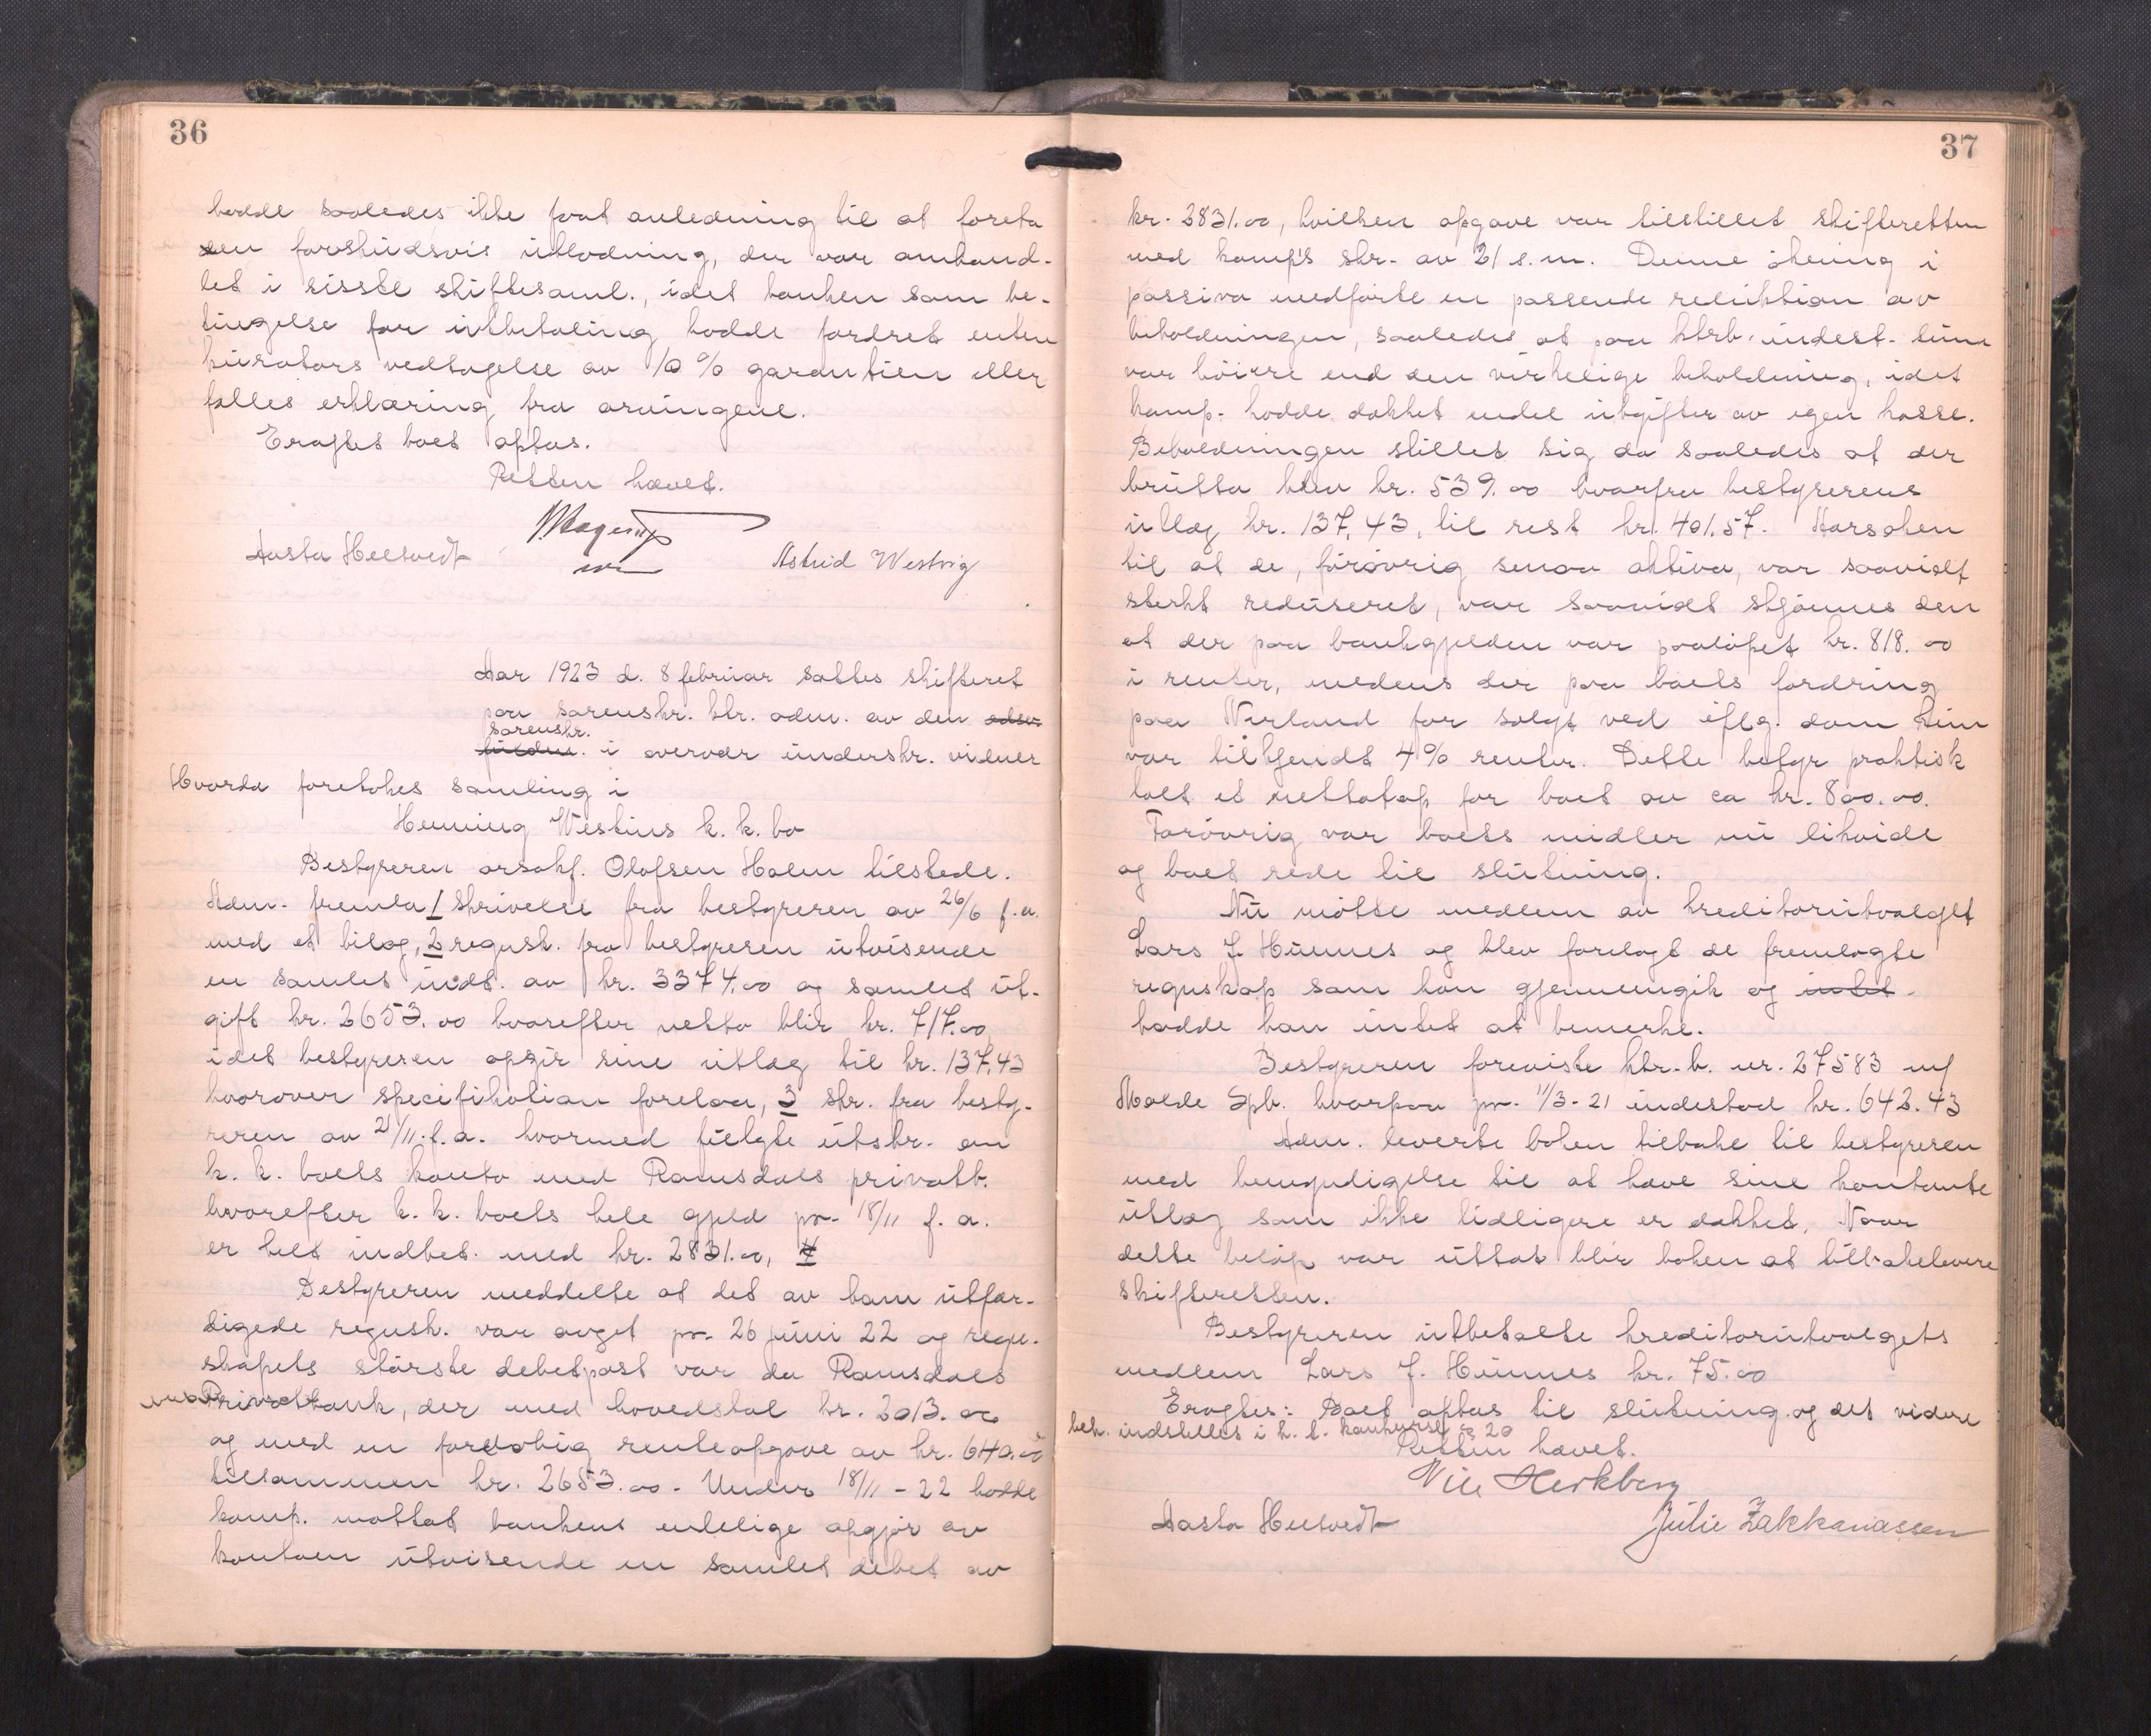 36
hadde saaledes ikke faat anledning til at foreta
den forskudsvis utlodning, der var omhand-
let i sisste skiftesaml., idet banken som be-
tingelse for utbetaling hadde fordret enten
kurators vedtagelse av 10 % garantien eller
falles erklæring fra arvingene.
Eragtet boet optas.
Retten hævet.
Aasta Heltvedt
Astrid Westvig
Aar 1923 d. 8 februar sattes skifteret
paa sorenskr. ktr. adm. av den
sorenskr.
i overvær underskr. vidner
Hvorda foretokes samling i
Henning Westins k. k. bo
Bestyreren orsakf. Olafsen Holm tilstede.
Adm. fremla 1 skrivelse fra bestyreren av 26/6 f.a.
med et bilag, 2 regnsk. fra bestyreren utvisende
en samlet indt. av kr. 3374.00 og samlet ut-
gift kr. 2653.00 hvorefter netto blir kr. 717.00
idet bestyreren opgir sine utlæg til kr. 137,43
hvorover specifikation forelaa, 3 skr. fra besty-
reren av 21/11 f.a. hvormed fulgte utskr. av
k. k. boets konto med Romsdals privatb.
hvorefter k. k. boets hele gjeld pr. 18/11 f. a.
er helt indbet. med kr. 2831.00, 4
Bestyreren meddelte at det av ham utfær-
digede regnsk. var avget pr. 26 juni 22 og regn-
skapets største debetpost var da Romsdals
Privatbank, der med hovedstol kr. 2013.00
og med en foreløbig renteopgave av kr. 640.00
tilsammen kr. 2653.00. Under 18/11 - 22 hadde
komp. mottat bankens endelige opgjør av
kontoen utvisende en samlet debet av
37
kr. 2831.00, hvilken opgave var tilstillet skifteretten
med komp's skr. av 21 s.m. Denne økning i
passiva medførte en passende reduktion av
beholdningen, saaledes at paa ktrb. indest. sum
var høiere end den virkelige beholdning, idet
komp. hadde dækket endel utgifter av egen kasse.
Beholdningen stillet sig da saaledes at der
brutto blev kr. 539.00 hvorfra bestyrerens
utlæg kr. 137,43, til rest kr. 401.57. Aarsaken
til at de, forøvrig smaa aktiva, var saavidt
sterkt reduseret, var saavidt skjønnes den
at der paa bankgjelden var paaløpet kr. 818.00
i renter, medens der paa boets fordring
paa Nerland for solgt ved iflg. dom kun
var tilkjendt 4% renter. Dette betyr praktisk
talt et nettotap for boet av ca kr. 800.00.
Forøvrig var boets midler nu likvide
og boet rede til slutning.
Nu møtte medlem av kreditorutvalget
Lars J. Hunnes og blev forelagt de fremlagte
regnskap som han gjennemgik og intet
hadde han intet at bemerke.
Bestyreren foreviste ktr. b. nr. 27583 m/
Molde Spb. hvorpaa pr. 11/3 - 21 indestod kr. 642.43
Adm. leverte boken tilbake til bestyreren
med bemyndigelse til at hæve sine kontante
utlæg som ikke tidligere er dækket. Naar
dette beløp var uttat blir boken at tilbakelevere
skifteretten.
Bestyreren utbetalte kreditorutvalgets
medlem Lars J. Hunnes kr. 75.00
Eragtes: Boet optas til slutning og det videre
beh. indstilles i h. t. konkursl.
Retten hævet.
Aasta Heltvedt
Julie Zakkariassen